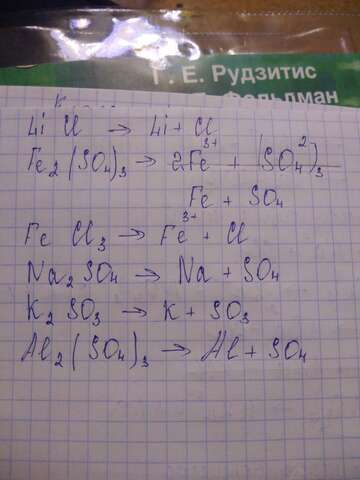 Г. Е. Рудзитис
Фельдман
Li Cl → Li + Cl
Fe₂(SO₄)₃ → 2Fe³⁺ + (SO₄²)₃
Fe + SO₄
Fe Cl₃ → Fe³⁺ + Cl
Na₂SO₄ → Na + SO₄
K₂SO₃ → K + SO₃
Al₂(SO₄)₃ → Al + SO₄